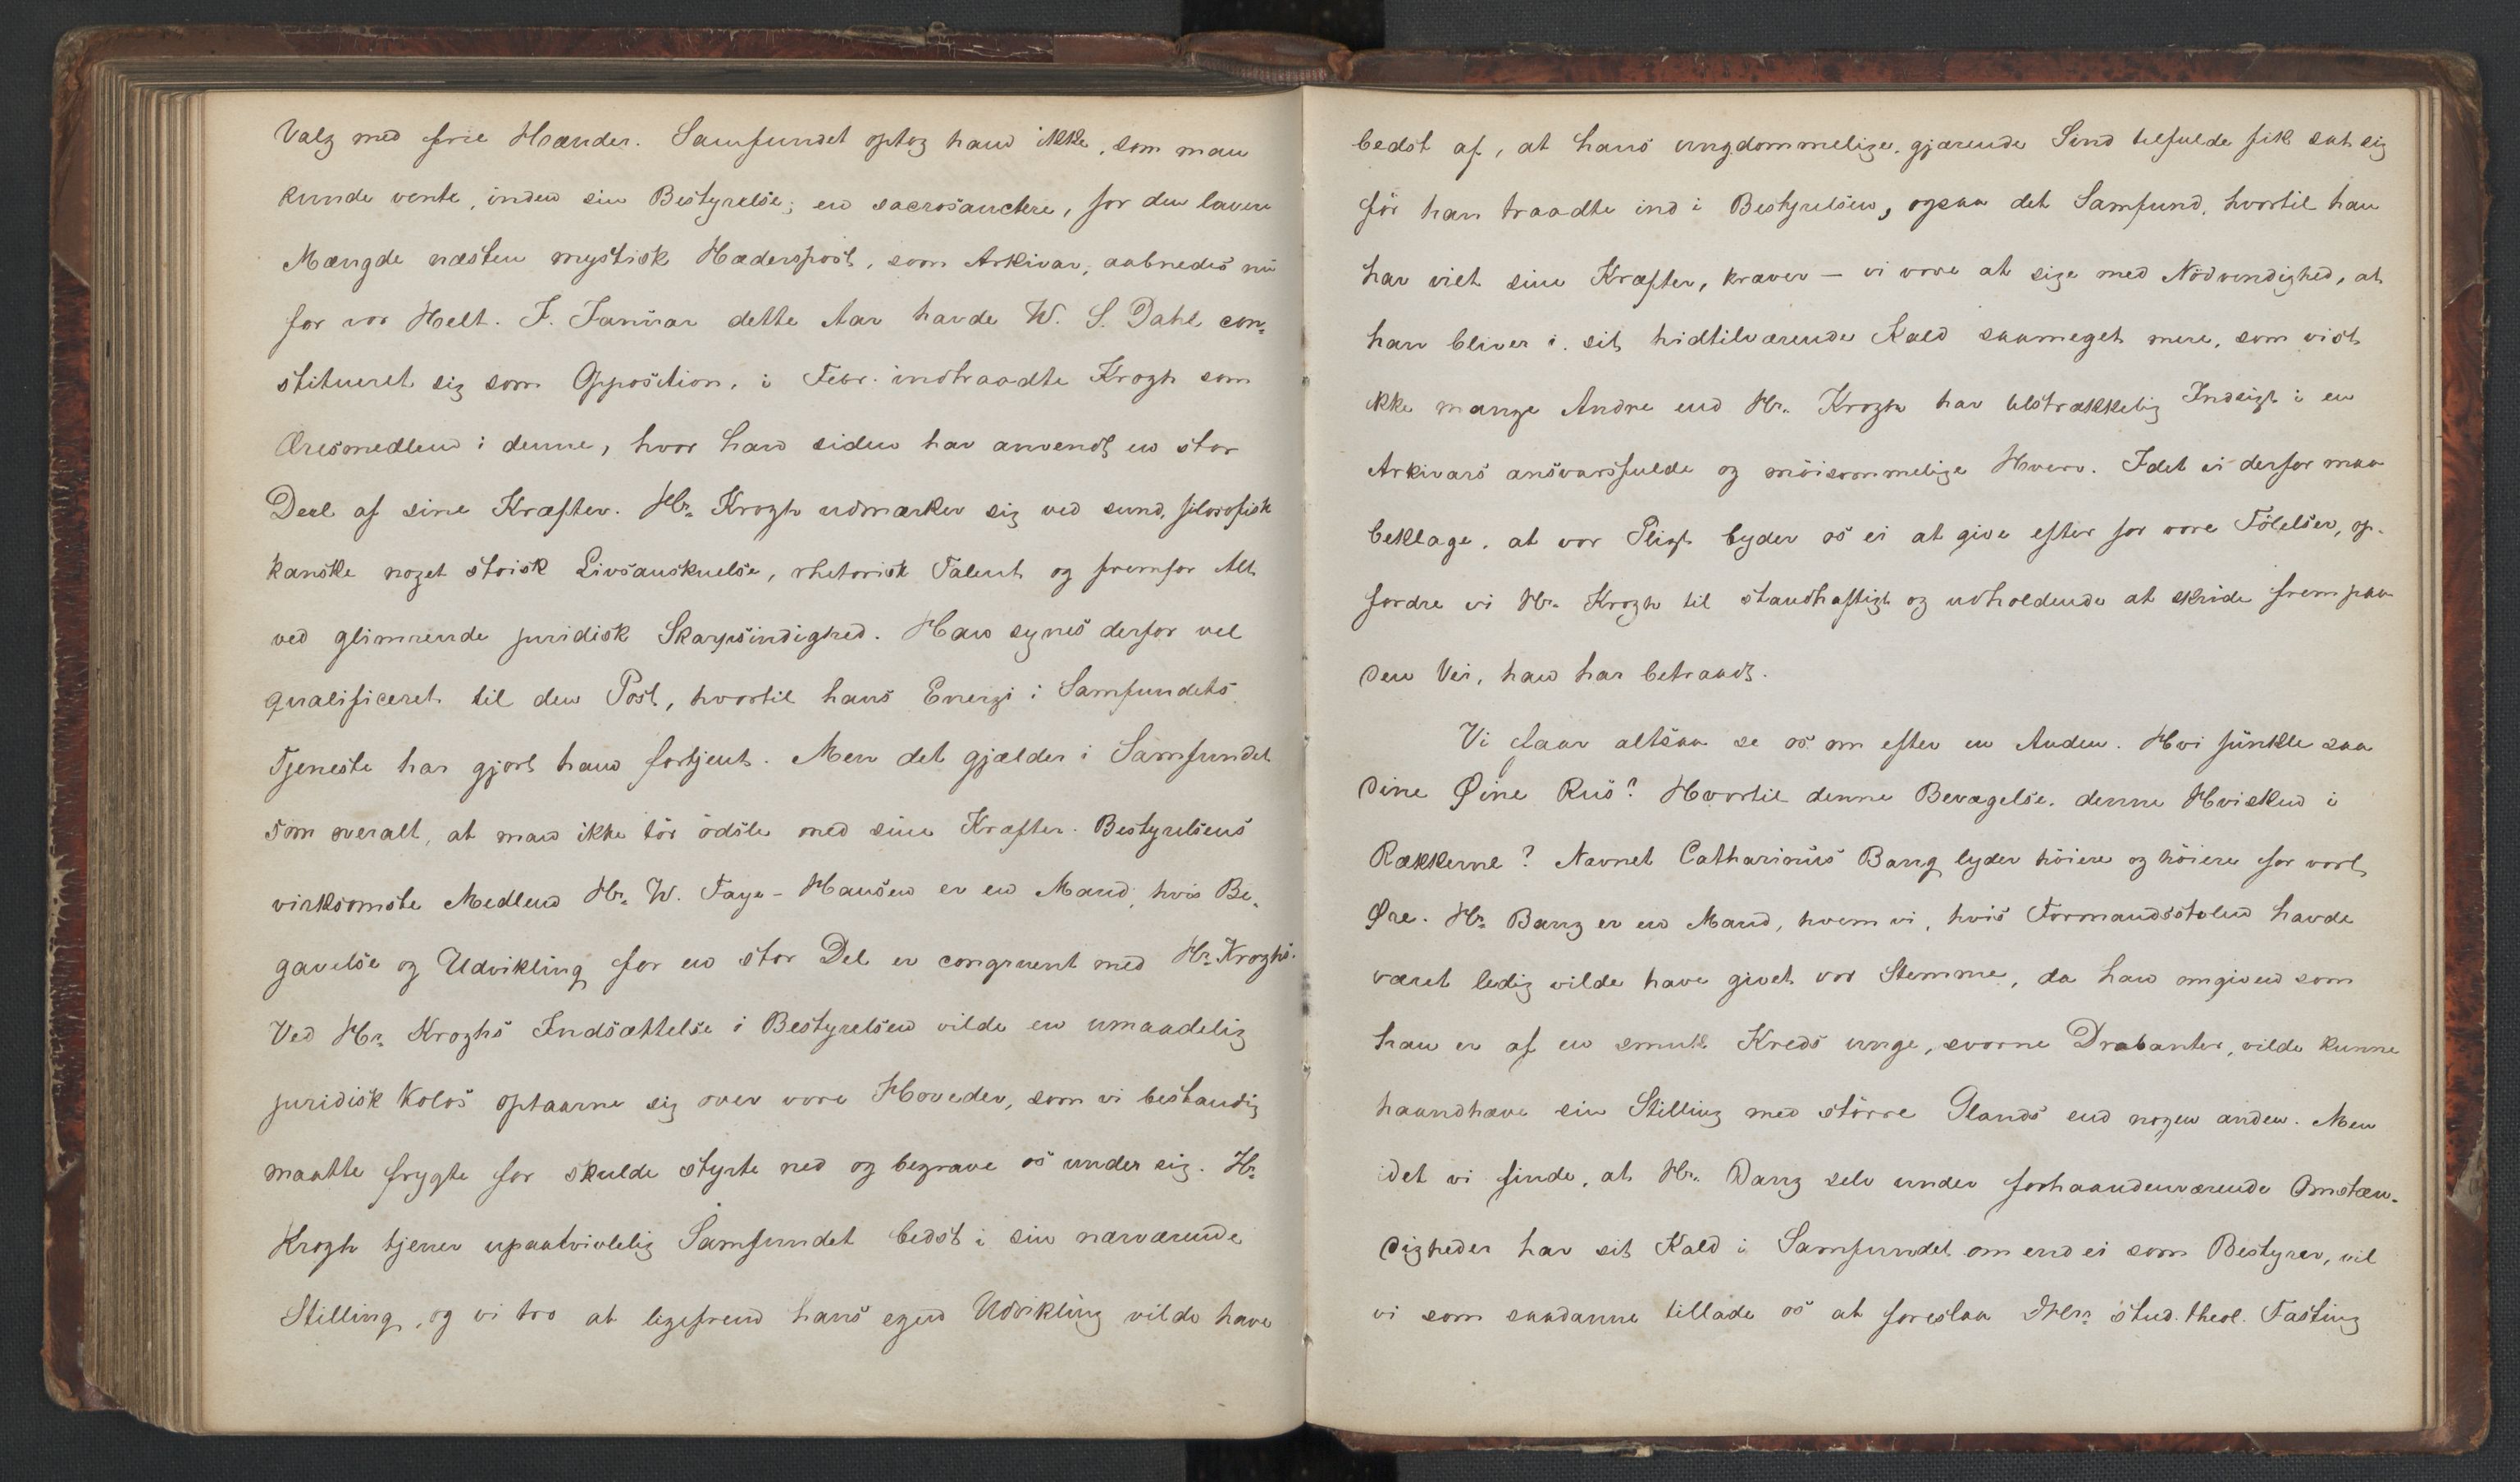 Valg med frie Hænder. Samfundet optog ham ikke, som man
kunde vente, inden sin Bestyrelse; en sacrosanctere, for den lavere
Mængde næsten mystisk Hæderspost, som Arkivar, aabnedes nu
for vor Helt. I. Januar dette Aar havde W. S. Dahl con-
stitueret sig som Opposition, i Febr. indtraadte Krogh som
Æresmedlem i denne, hvor han siden har anvendt en stor
Deel af sine Kræfter. Hr. Krogh udmærker sig ved sund, filosofisk
kanske noget stoisk Livsanskuelse, rhetorisk Talent og fremfor Alt
ved glimrende juridisk Skarpsindighed. Han synes derfor vel
qualificeret til den Post, hvortil hans Energi i Samfundets
Tjeneste har gjort ham fortjent. Men det gjælder i Samfundet
som overalt, at man ikke tör ödsle med sine Kræfter. Bestyrelsens
virksomste Medlem Hr. W. Faye-Hansen er en Mand, hvis Be-
gavelse og Udvikling for en stor Del er congruent med Hr. Kroghs.
Ved Hr. Kroghs Indsættelse i Bestyrelsen vilde en umaadelig
juridisk Kolos optaarne sig over vore Hoveder, som vi bestandig
maatte frygte for skulde styrte ned og begrave os under sig. Hr.
Krogh tjener upaatvivlelig Samfundet bedst i sin nærværende
Stilling, og vi tro at ligefrem hans egen Udvikling vilde have
bedst af, at hans ungdommelige, gjærende Sind tilfulde fik sat sig
för han traadte ind i Bestyrelsen, ogsaa det Samfund, hvortil han
har viet sine Kræfter, kræver – vi vove at sige med Nödvendighed, at
han bliver i sit hidtilværende Kald saameget mere, som vist
ikke mange Andre end Hr. Krogh har tilstrækkelig Indsigt i en
Arkivars ansvarsfulde og möisommelige Hverv. Idet vi derfor maa
beklage, at vor Pligt byder os ei at give efter for vore Fölelser, op-
fordre vi Hr. Krogh til standhaftigt og udholdende at skride frem paa
den Vei, han har betraadt.
Vi faar altsaa se os om efter en Anden. Hvi funkle saa
dine Øine Rus? Hvortil denne Bevægelse, denne Hvisken i
Rækkerne? Navnet Catharinus Bang lyder höiere og höiere for vort
Øre. Hr. Bang er en Mand, hvem vi, hvis Formandsstolen havde
været ledig vilde have givet vor Stemme, da han omgiven som
han er af en smuk Kreds unge, svorne Drabanter, vilde kunne
haandhæve sin Stilling med större Glands end nogen anden. Men
idet vi finde, at Hr. Bang selv under forhaandenværende Omstæn-
digheder har sit Kald i Samfundet om end ei som Bestyrer, vil
vi som saadanne tillade os at foreslaa Hr. stud. theol. Fasting